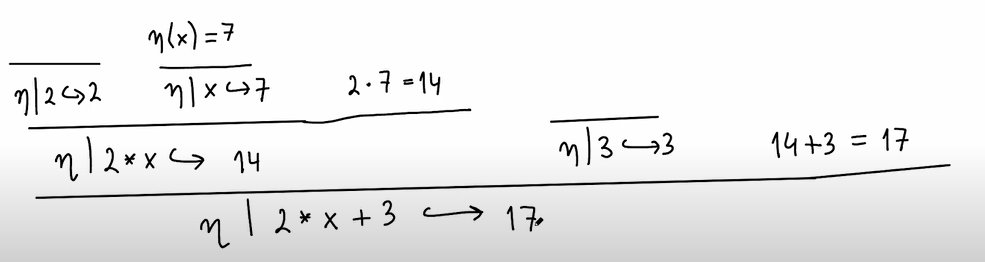 η(x) = 7
η | 2 ↪ 2    η | x ↪ 7    2 · 7 = 14
η | 2 * x ↪ 14    η | 3 ↪ 3    14 + 3 = 17
η | 2 * x + 3 ↪ 17